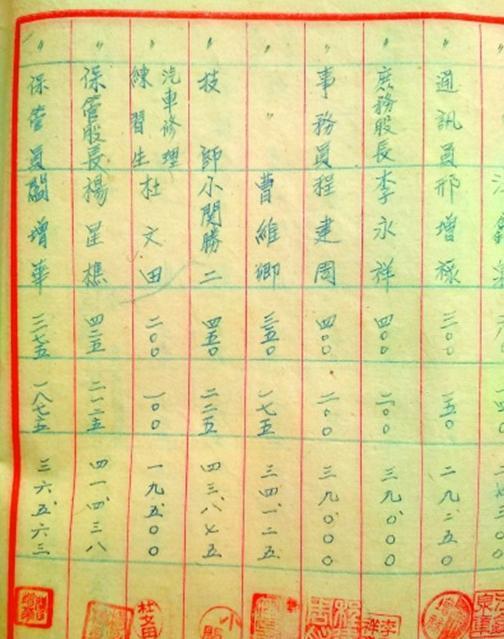 〃 通訊員 邢增祿 三〇〇 一五〇 二九、二五〇
〃 庶務股長 李永祥 四〇〇 二〇〇 三九、〇〇〇
〃 事務員 程建周 四〇〇 二〇〇 三九、〇〇〇
〃 〃 曹維卿 三五〇 一七五 三四、一二五
〃 技師 小関勝二 四五〇 二二五 四三、八七五
〃 汽車修理
練習生 杜文田 二〇〇 一〇〇 一九、五〇〇
〃 保管股長 楊星樵 四二五 二一二五 四一、四三八
〃 保管員 閻增華 三七五 一八七五 三六、五六三